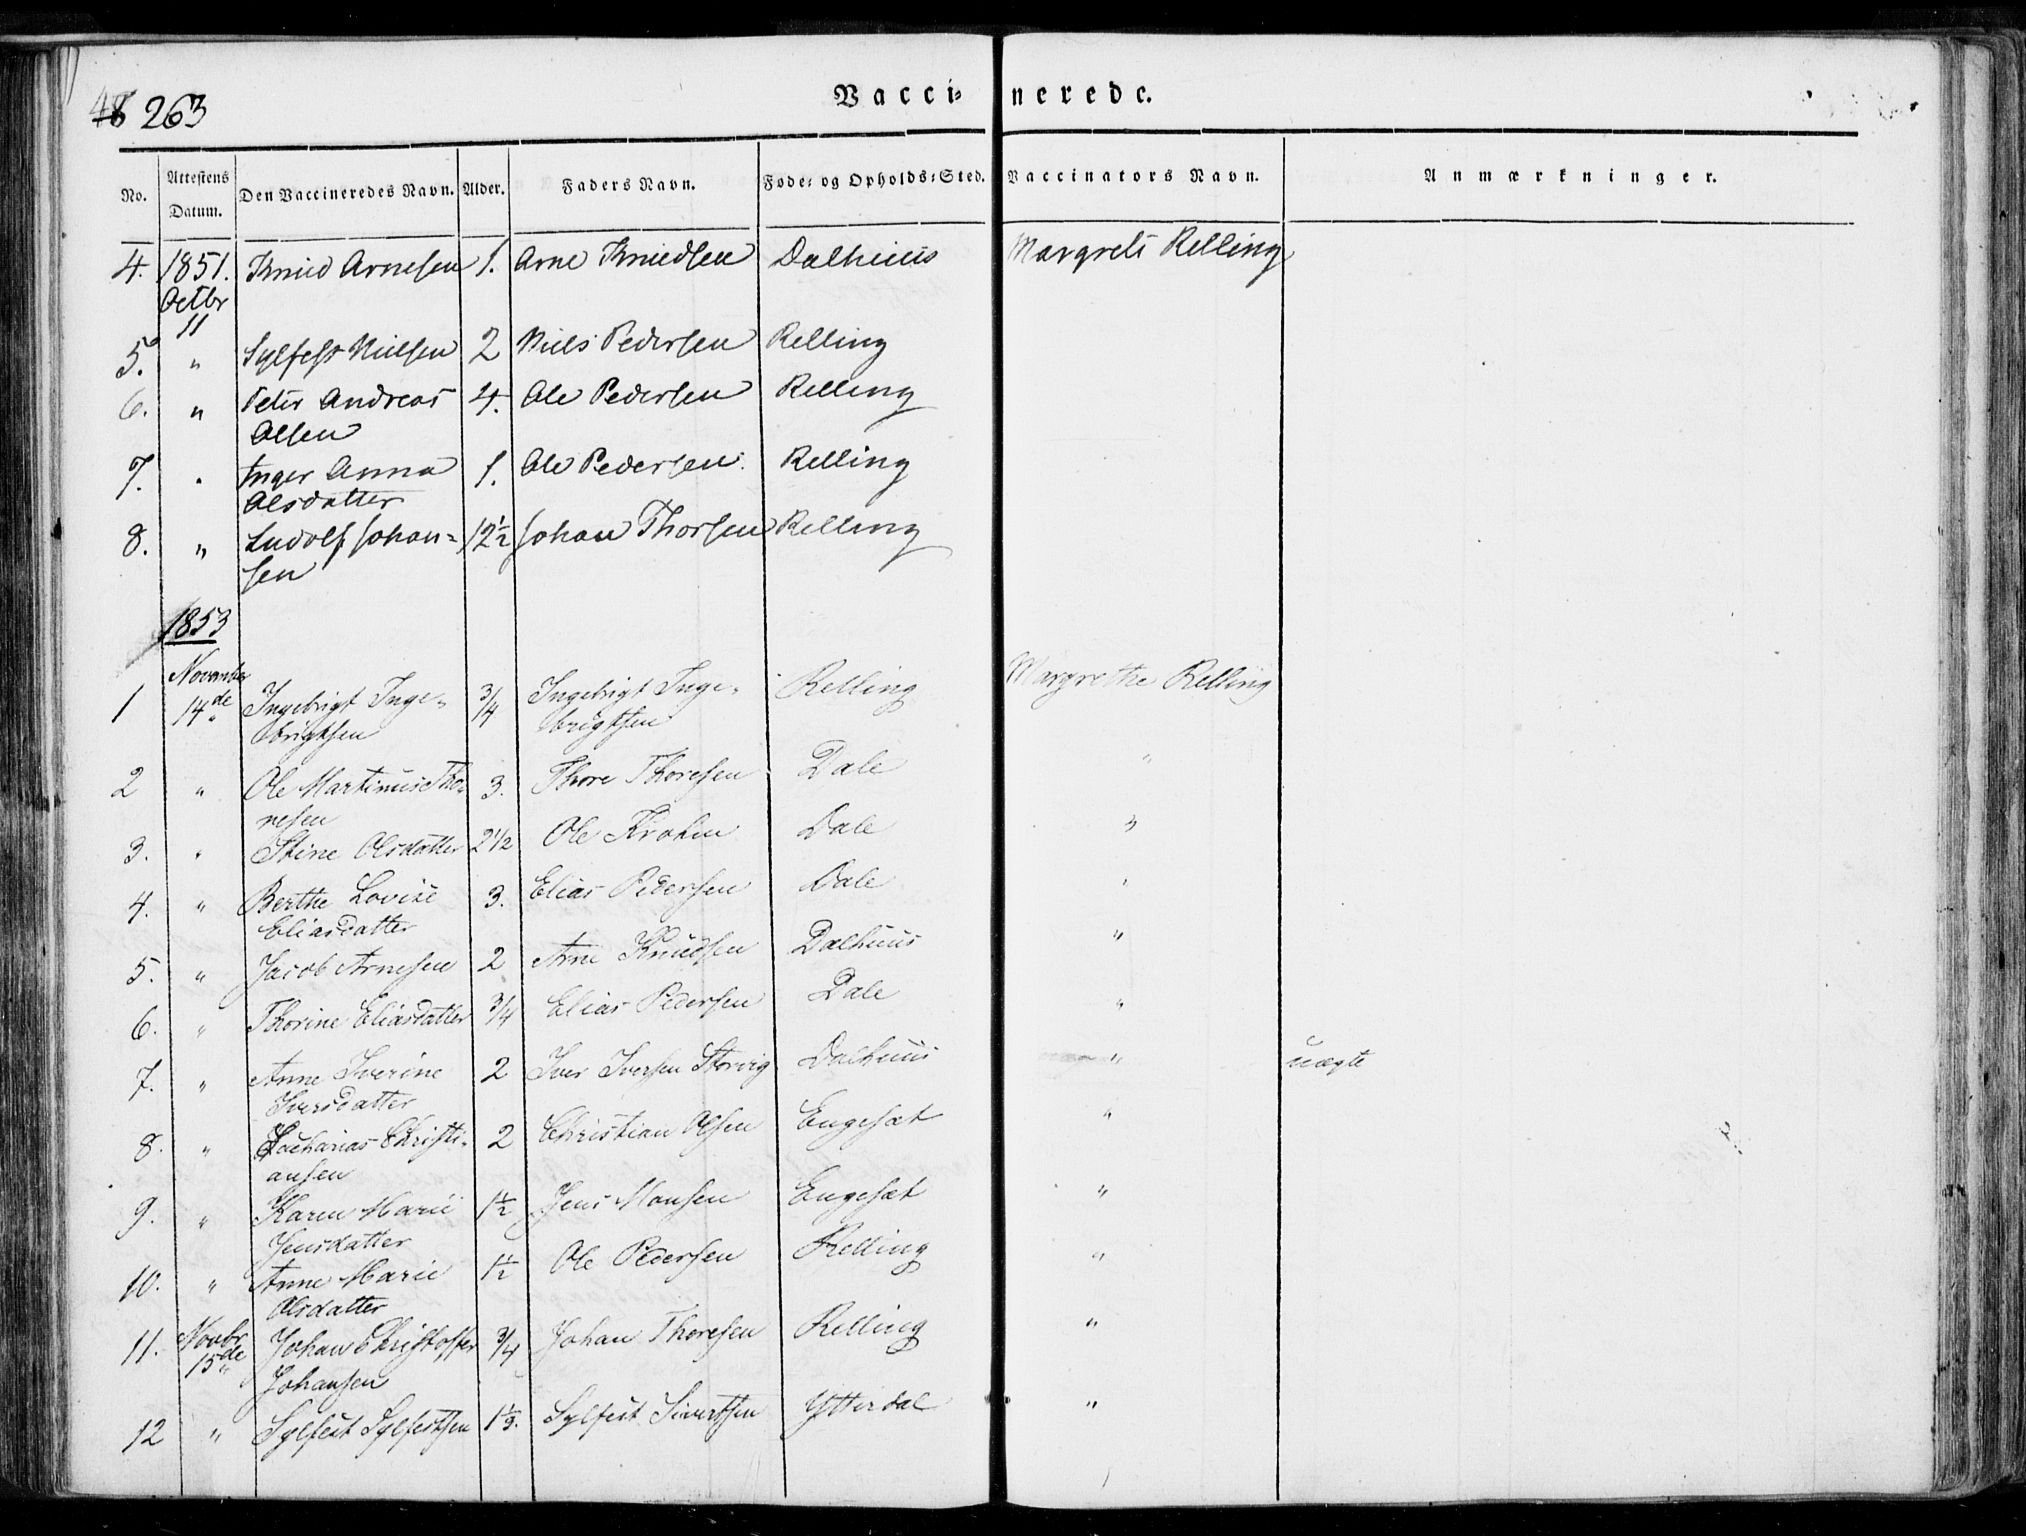 48 263
Vaccinerede.
No. Attestens Datum. Den Vaccineredes Navn. Alder. Faders Navn. Føde- og Opholds-Sted. Vaccinators Navn. Anmærkninger.
4. 1851. Knud Arnesen 1. Arne Knudsen Dalhuus Margrete Relling
Octbr
11
5. " Sylfest Nielsen 2 Niels Pedersen Relling
6. " Peter Andreas 4. Ole Pedersen Relling
Olsen
7. " Inger Anna 1. Ole Pedersen. Relling
Olsdatter
8. " Ludolf Johan- 12½ Johan Thorsen Relling
sen
1853
November
1 14de Ingebrigt Inge- 3/4 Ingebrigt Inge- Relling Margrethe Relling
brigtsen brigtsen
2 " Ole Martinus Tho- 3. Thore Thoresen Dale "
resen
3. " Stine Olsdatter 2 1/2 Ole Dale "
4. " Berthe Lovise 3. Elias Pedersen Dale "
Eliasdatter
5. " Jacob Arnesen 2 Arne Knudsen Dalhuus "
6. " Thorine Eliasdatter 3/4 Elias Pedersen Dale "
7. " Anne Iverine 2 Iver Iversen Storvig Dalhuus " uægte
Iversdatter
8. " Zacharias Christi- 2 Christian Olsen Engesæt "
ansen
9. " Karen Marie 1½ Jens Monsen Engesæt "
Jensdatter
10. " Anne Marie 1½ Ole Pedersen Relling "
Olsdatter
11. Novbr Johan Christoffer 3/4 Johan Thoresen Relling "
15de Johansen
12 " Sylfest Sylfestsen 1⅓. Sylfest Sivertsen Ytterdal "